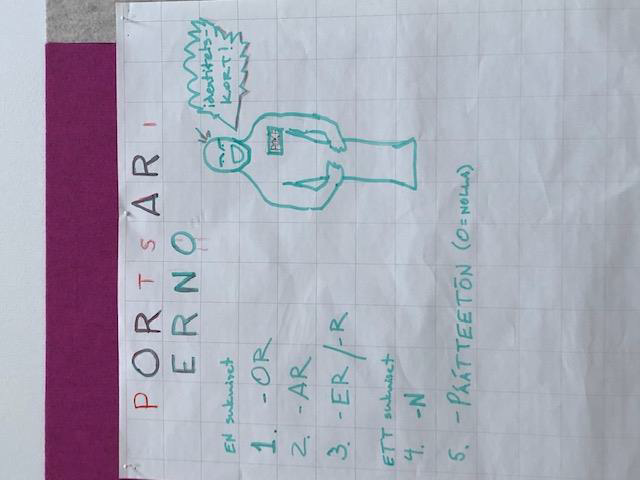 PORTSARI
ERNO
identitets-
KORT!
POKE
EN sukuiset
1. -OR
2. -AR
3. -ER/-R
ETT sukuiset
4. -N
5. -PÄÄTTEETÖN (O=NOLLA)